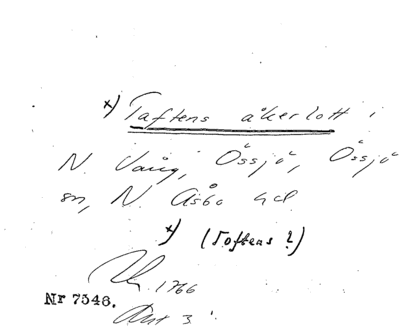 x) Taftens åkerlott i
N. Vång, Össjö, Össjö
sn, N. Åsbo hd
x) (Toftens?)
1766
Nr 7546.
Akt 3.